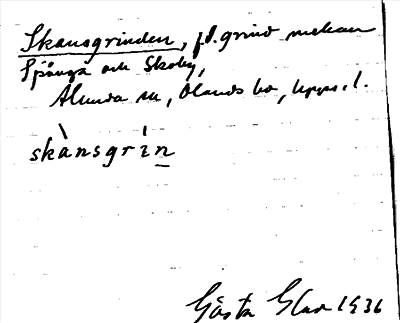 Skansgrinden, f.d. grind mellan
Spånga och Skoby,
Alunda sn, Olands hd, Upps. l.
skànsgrín
Gösta Glad 1936